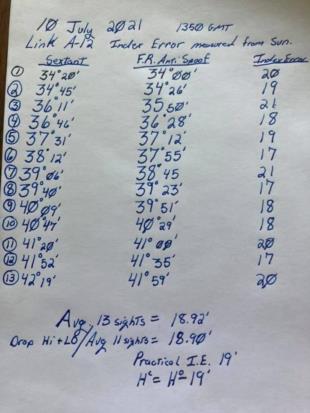 10 July 2021 1350 GMT
Link A-12 Index Error measured from Sun.
Sextant F.R. Anti. Spoof Index Error
① 34°20' 34°00' 20
② 34°45' 34°26' 19
③ 36°11' 35 50' 21
④ 36°46' 36°28' 18
⑤ 37°31' 37°12' 19
⑥ 38°12' 37°55' 17
⑦ 39°06' 38°45 21
⑧ 39°40' 39°23' 17
⑨ 40°09' 39°51' 18
⑩ 40°47' 40°29' 18
⑪ 41°20' 41°00' 20
⑫ 41°52' 41°35' 17
⑬ 42°19' 41°59' 20
Avg. 13 sights = 18.92'
Drop Hi + Lo / Avg 11 sights = 18.90'
Practical I.E. 19'
Hc = Ho - 19'